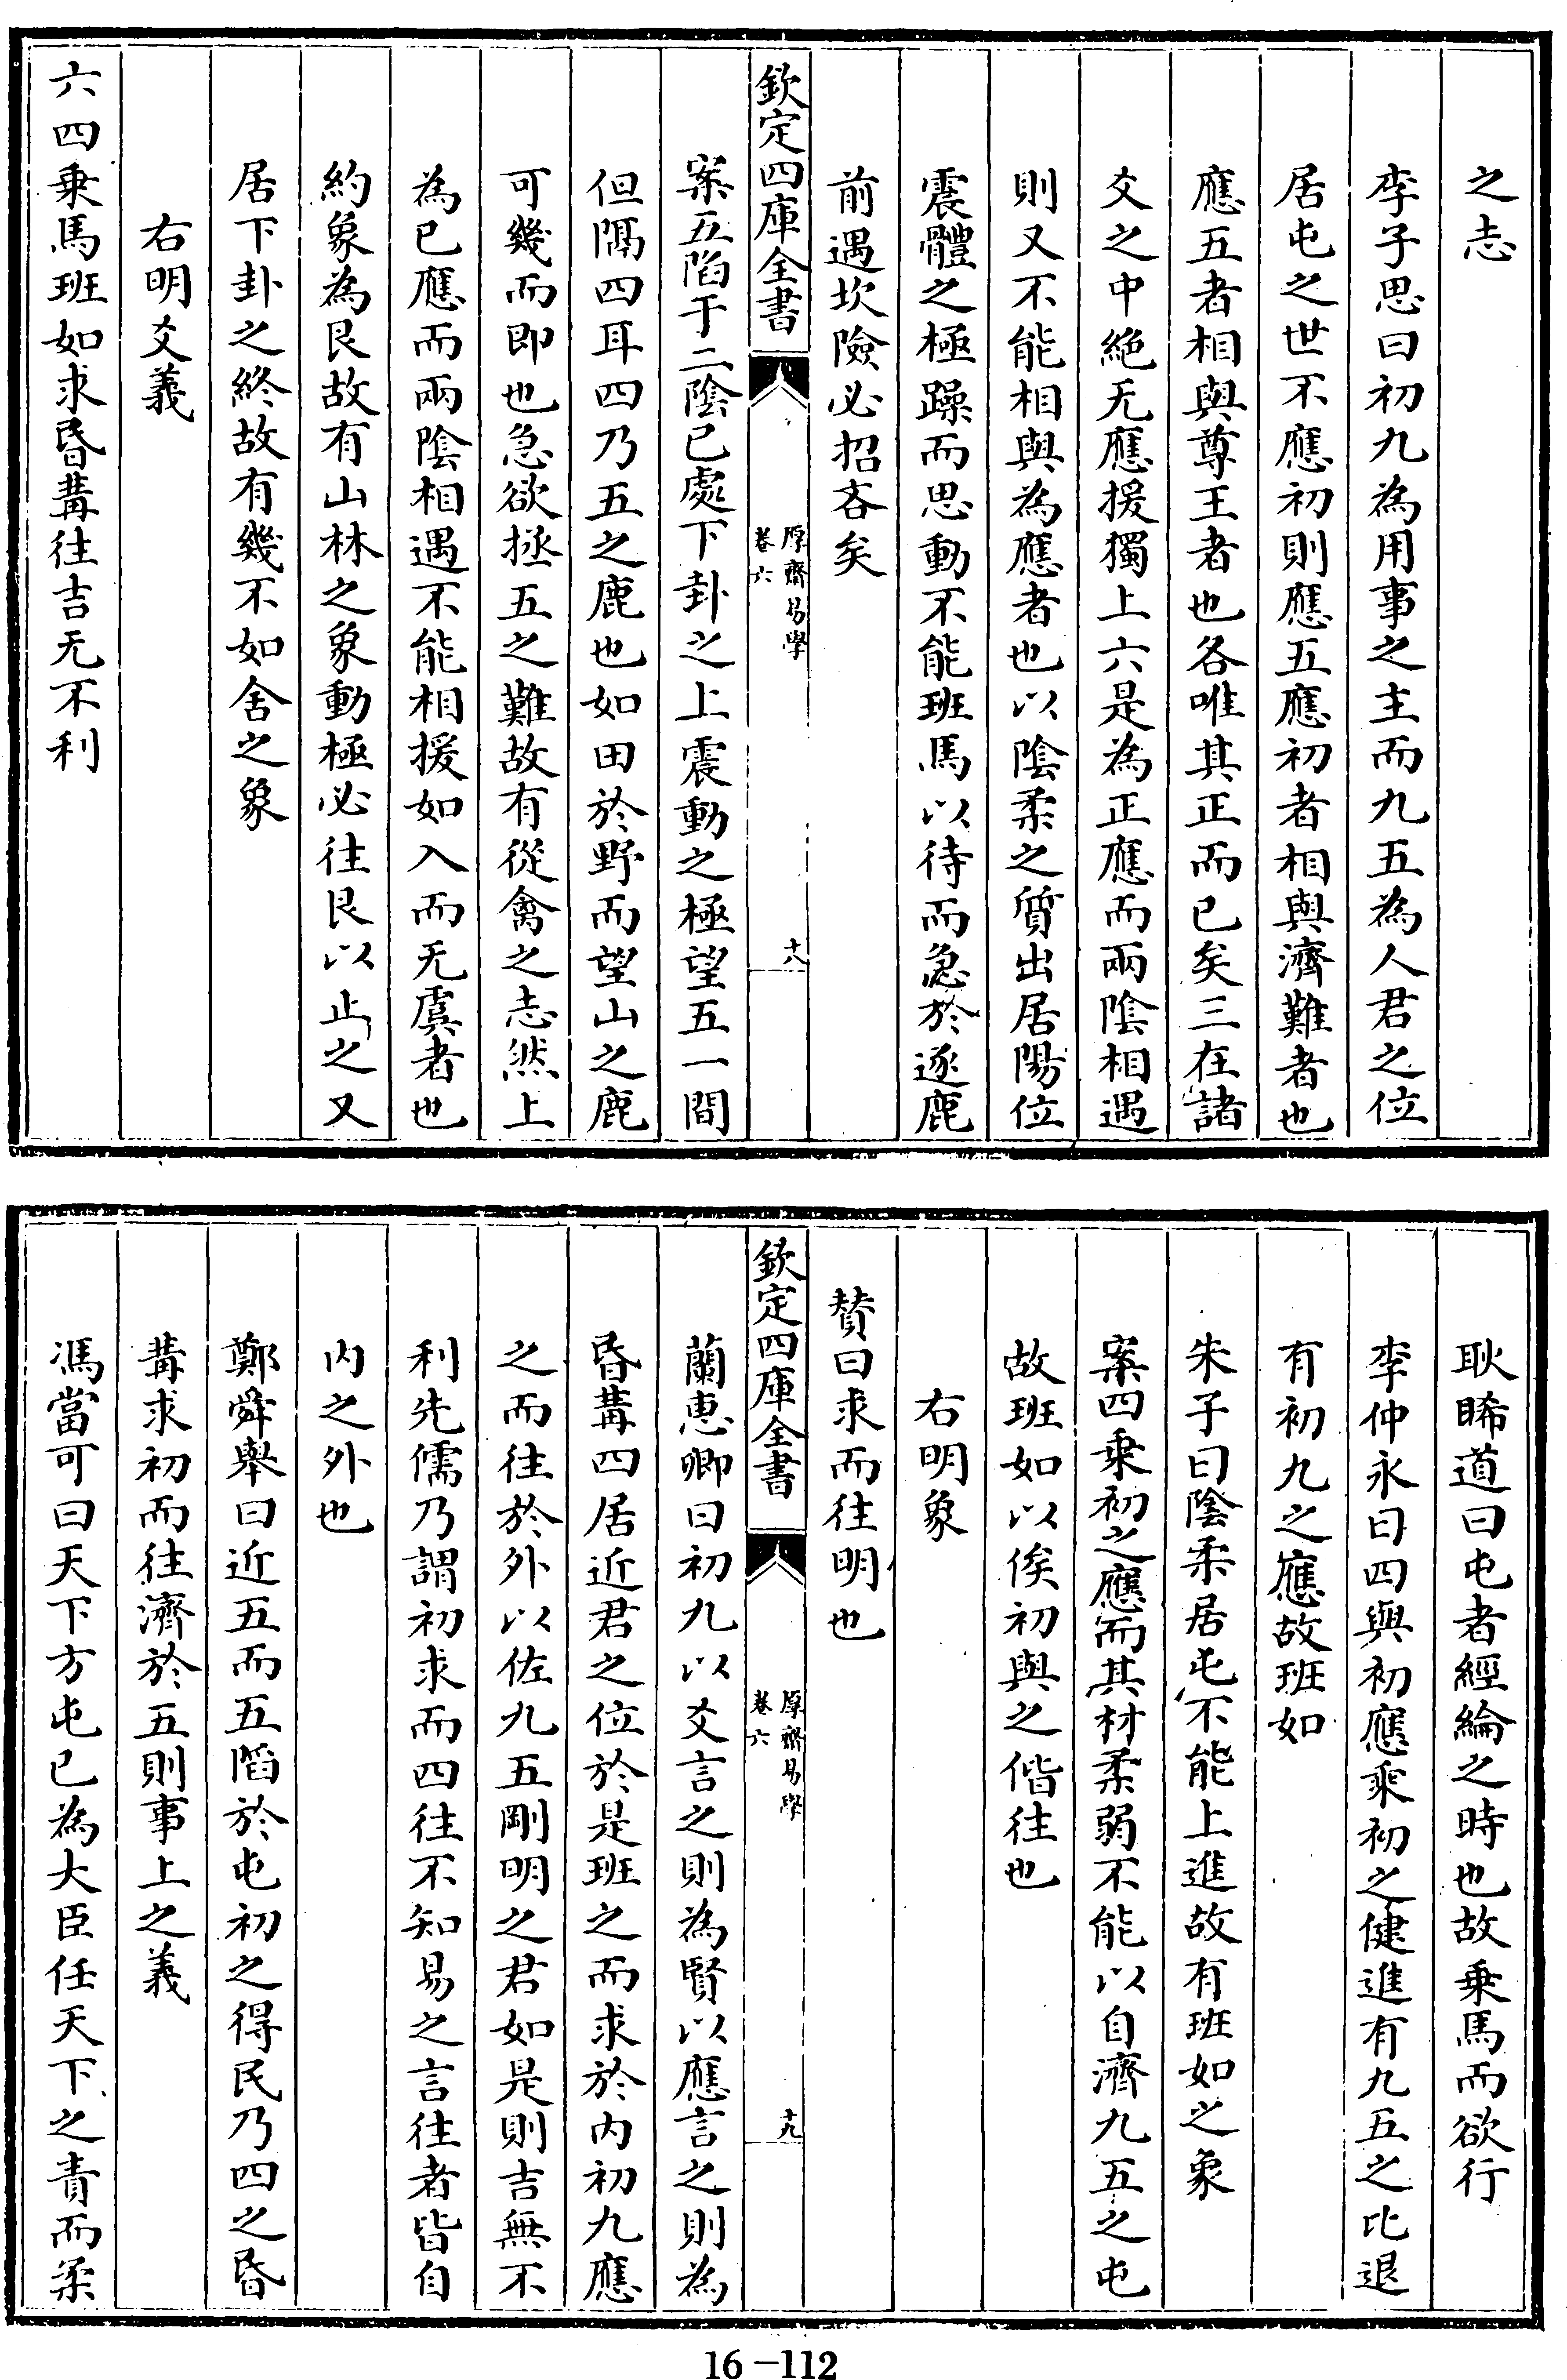 之志
李子思曰初九為用事之主而九五為人君之位
居屯之世不應初則應五應初者相與濟難者也
應五者相與尊王者也各唯其正而已矣三在諸
爻之中絶无應援獨上六是為正應而兩陰相遇
則又不能相與為應者也以陰柔之質出居陽位
震體之極躁而思動不能班馬以待而急於逐鹿
前遇坎險必招吝矣
欽定四庫全書
厚齋易學
卷六
十八
案五陷于二陰已處下卦之上震動之極望五一間
但隔四耳四乃五之鹿也如田於野而望山之鹿
可幾而即也急欲拯五之難故有從禽之志然上
為已應而兩陰相遇不能相援如入而无虞者也
約象為艮故有山林之象動極必往艮以止之又
居下卦之終故有幾不如舍之象
右明爻義
六四乗馬班如求昏媾往吉无不利
耿睎道曰屯者經綸之時也故乗馬而欲行
李仲永曰四與初應乘初之健進有九五之比退
有初九之應故班如
朱子曰陰柔居屯不能上進故有班如之象
案四乗初之應而其材柔弱不能以自濟九五之屯
故班如以俟初與之偕往也
右明象
賛曰求而往明也
欽定四庫全書
厚齋易學
卷六
十九
蘭惠卿曰初九以爻言之則為賢以應言之則為
昏媾四居近君之位於是班之而求於内初九應
之而往於外以佐九五剛明之君如是則吉無不
利先儒乃謂初求而四往不知易之言往者皆自
内之外也
鄭舜舉曰近五而五滔於屯初之得民乃四之昏
媾求初而往濟於五則事上之義
馮當可曰天下方屯已為大臣任天下之責而柔
16-112